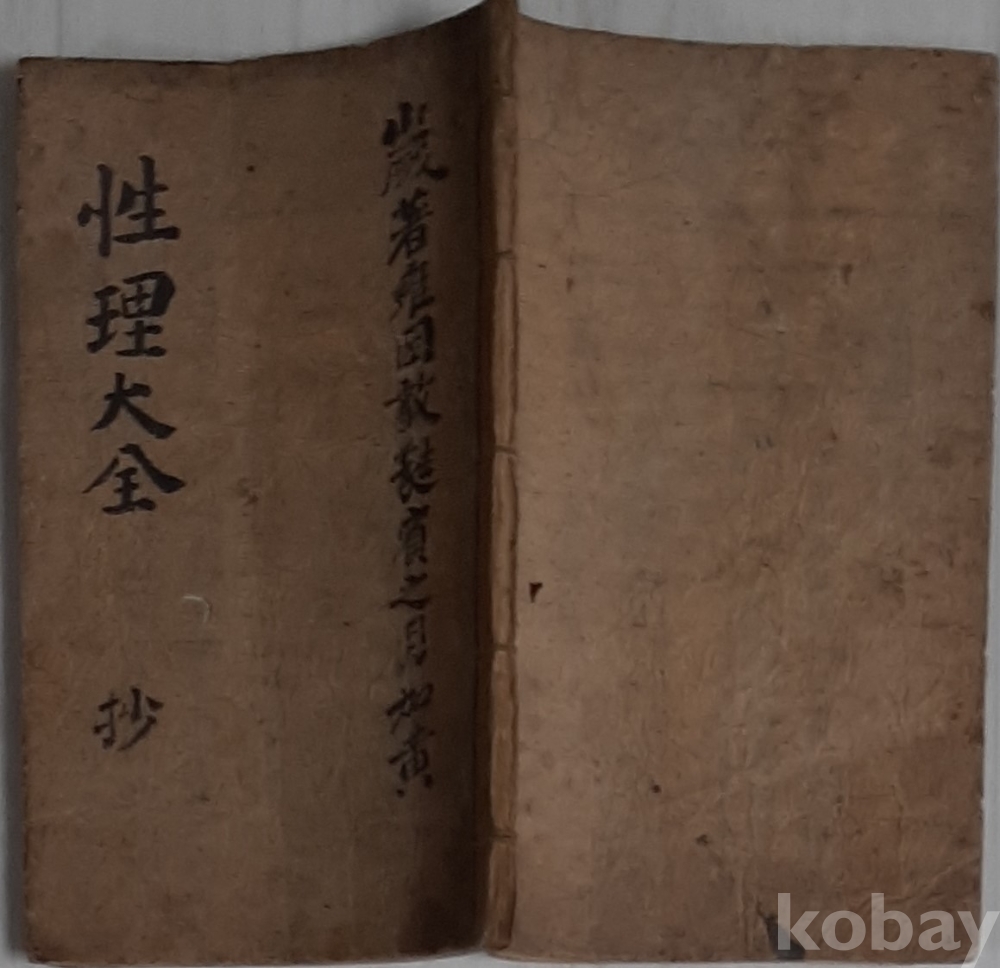 歲著雍困敦蕤賓之月如黄
性理大全 抄
kobay